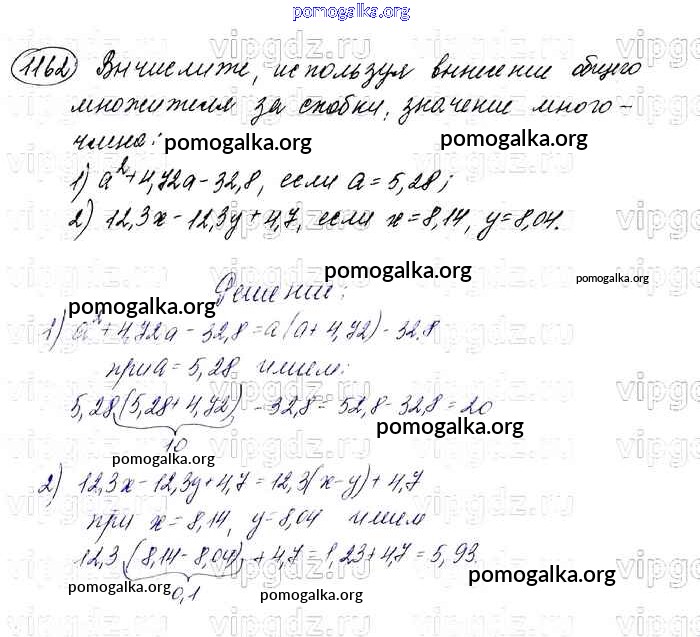 pomogalka.org
1162 Вычислите, используя вынесение общего
множителя за скобки, значение много-
члена:
pomogalka.org pomogalka.org
1) a²+4,72a-32,8, если a=5,28;
2) 12,3x-12,3y+4,7, если x=8,14, y=8,04.
pomogalka.org pomogalka.org
Решение:
pomogalka.org
1) a²+4,72a-32,8=a(a+4,72)-32,8
при a=5,28 имеем:
5,28(5,28+4,72)-32,8=52,8-32,8=20
pomogalka.org
10
pomogalka.org
2) 12,3x-12,3y+4,7=12,3(x-y)+4,7
при x=8,14, y=8,04 имеем
12,3(8,14-8,04)+4,7=1,23+4,7=5,93.
pomogalka.org
0,1
pomogalka.org pomogalka.org
vipgdz.ru